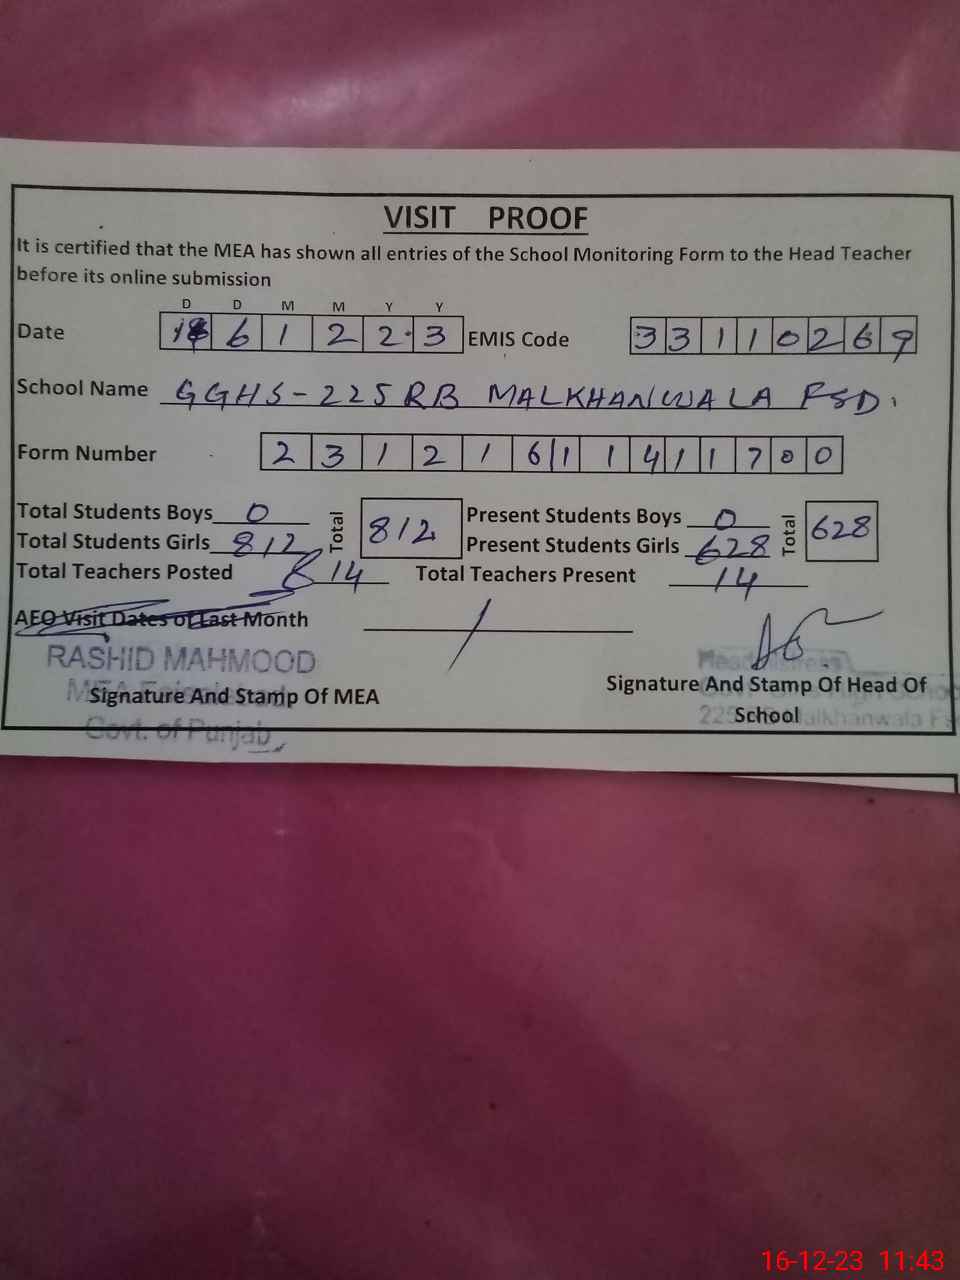 VISIT PROOF
It is certified that the MEA has shown all entries of the School Monitoring Form to the Head Teacher
before its online submission
D D M M Y Y
Date 1 6 1 2 2 3 EMIS Code 3 3 1 1 0 2 6 9
School Name GGHS-225 RB MALKHANWALA FSD.
Form Number 2 3 1 2 1 6 1 1 4 1 1 7 0 0
Total Students Boys 0 Total 812 Present Students Boys 0 Total 628
Total Students Girls 812 Present Students Girls 628
Total Teachers Posted 14 Total Teachers Present 14
AEO Visit Dates of Last Month
RASHID MAHMOOD
Signature And Stamp Of MEA
Govt. of Punjab
Signature And Stamp Of Head Of
School
Malkhanwala
16-12-23 11:43